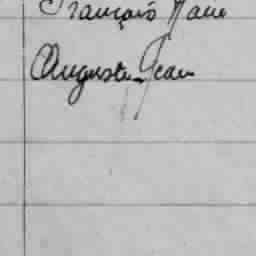 François Marie
Auguste Jean